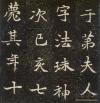 于第夫人
字法珠神
次己亥七
薨其年十